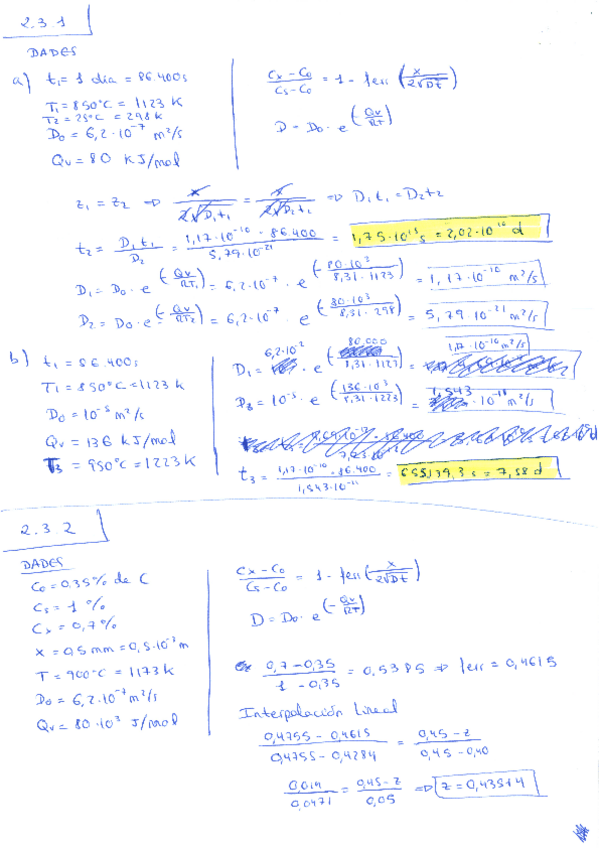 2.3.1
DADES
a) t₁ = 1 dia = 86.400s
T₁ = 850°C = 1123 K
T₂ = 25°C = 298 K
D₀ = 6,2·10⁻⁷ m²/s
Qv = 80 KJ/mol
(Cx - C₀)/(Cs - C₀) = 1 - ferr (x/(2√Dt))
D = D₀ · e^(-Qv/RT)
z₁ = z₂ ⇒ x/(2√D₁t₁) = x/(2√D₂t₂) ⇒ D₁t₁ = D₂t₂
t₂ = D₁t₁/D₂ = (1,17·10⁻¹⁰ · 86.400)/(5,79·10⁻²¹) = 1,75·10¹⁵ s = 2,02·10¹⁰ d
D₁ = D₀ · e^(-Qv/RT₁) = 6,2·10⁻⁷ · e^(-80·10³/(8,31·1123)) = 1,17·10⁻¹⁰ m²/s
D₂ = D₀ · e^(-Qv/RT₂) = 6,2·10⁻⁷ · e^(-80·10³/(8,31·298)) = 5,79·10⁻²¹ m²/s
b) t₁ = 86.400s
T₁ = 850°C = 1123 K
D₀ = 10⁻⁵ m²/s
Qv = 136 KJ/mol
T₃ = 950°C = 1223 K
D₁ = 6,2·10⁻² · e^(-80,000/(8,31·1123)) = 1,17·10⁻¹⁰ m²/s
D₃ = 10⁻⁵ · e^(136·10³/(8,31·1223)) = 1,543 · 10⁻¹¹ m²/s
t₃ = (1,17·10⁻¹⁰ · 86.400)/(1,543·10⁻¹¹) = 655.139,3 s = 7,58 d
2.3.2
DADES
C₀ = 0.35% de C
Cs = 1 %
Cx = 0,7 %
x = 0,5 mm = 0,5·10⁻³ m
T = 900°C = 1173 K
D₀ = 6,2·10⁻⁷ m²/s
Qv = 80·10³ J/mol
(Cx - C₀)/(Cs - C₀) = 1 - ferr (x/(2√Dt))
D = D₀ · e^(-Qv/RT)
(0,7 - 0,35)/(1 - 0,35) = 0,5385 ⇒ ferr = 0,4615
Interpolación Lineal
(0,4755 - 0,4615)/(0,4755 - 0,4284) = (0,45 - z)/(0,45 - 0,40)
0,014/0,0471 = (0,45 - z)/0,05 ⇒ z = 0,43514